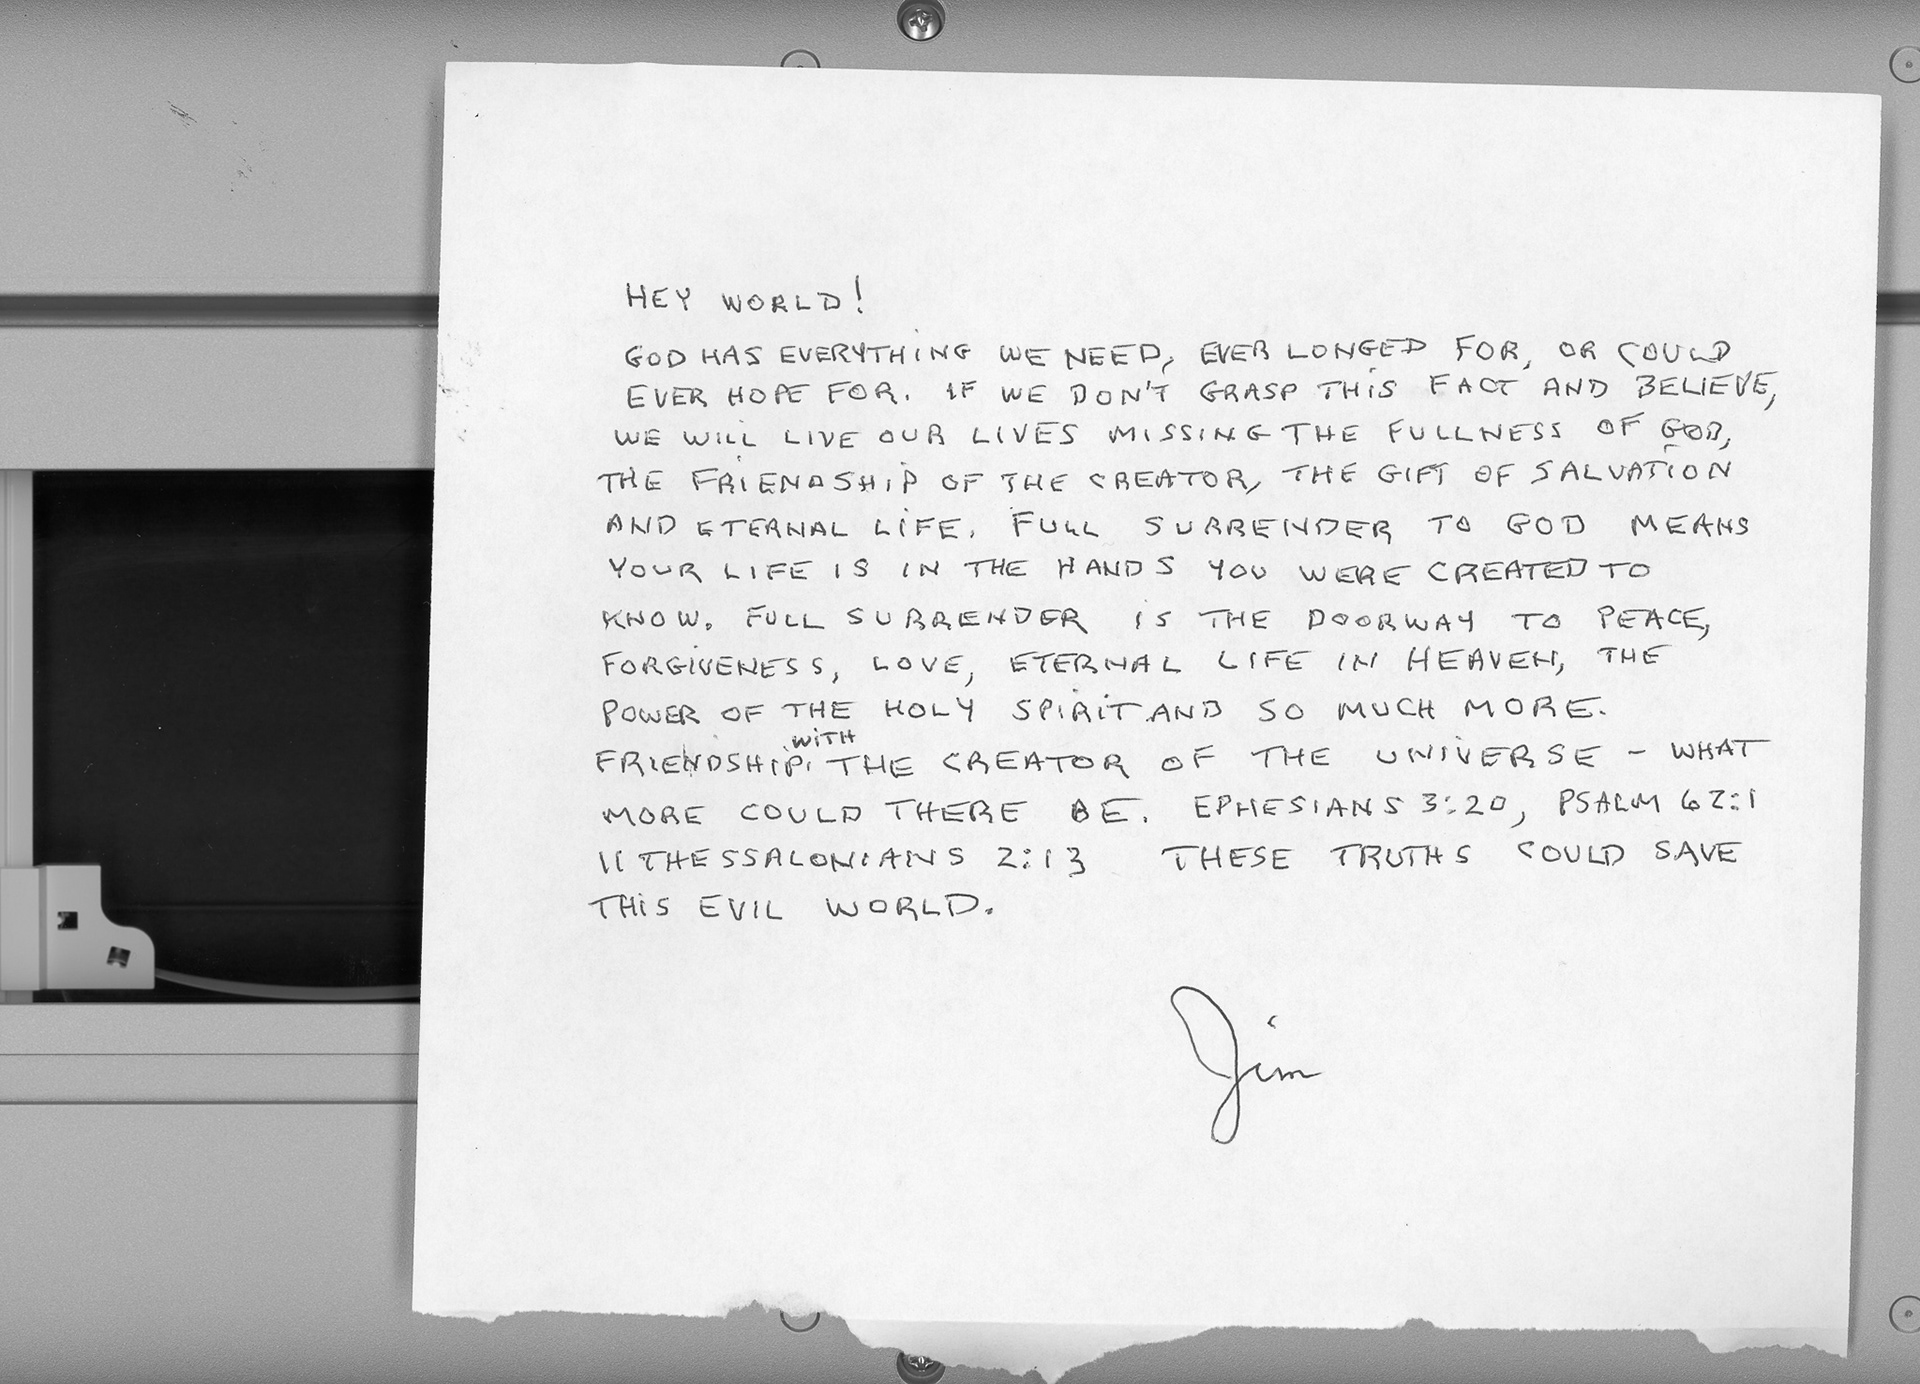 HEY WORLD!
GOD HAS EVERYTHING WE NEED, EVER LONGED FOR, OR COULD
EVER HOPE FOR. IF WE DON'T GRASP THIS FACT AND BELIEVE,
WE WILL LIVE OUR LIVES MISSING THE FULLNESS OF GOD,
THE FRIENDSHIP OF THE CREATOR, THE GIFT OF SALVATION
AND ETERNAL LIFE. FULL SURRENDER TO GOD MEANS
YOUR LIFE IS IN THE HANDS YOU WERE CREATED TO
KNOW. FULL SURRENDER IS THE DOORWAY TO PEACE,
FORGIVENESS, LOVE, ETERNAL LIFE IN HEAVEN, THE
POWER OF THE HOLY SPIRIT AND SO MUCH MORE.
FRIENDSHIP WITH THE CREATOR OF THE UNIVERSE - WHAT
MORE COULD THERE BE. EPHESIANS 3:20, PSALM 62:1
II THESSALONIANS 2:13 THESE TRUTHS COULD SAVE
THIS EVIL WORLD.
Jim